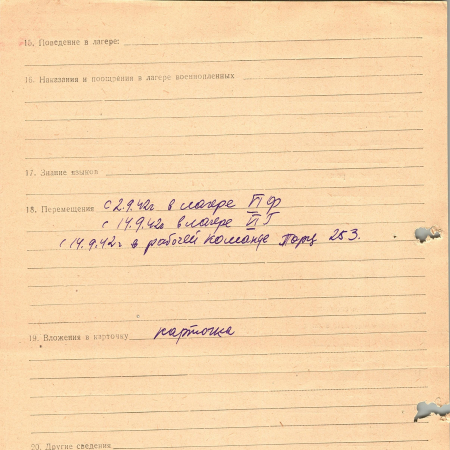 15. Поведение в лагере:
16. Наказания и поощрения в лагере военнопленных
17. Знание языков
18. Перемещения с 2.9.42г. в лагере II Ф
с 14.9.42г. в лагере VI Г
с 14.9.42г в рабочей команде 253.
19. Вложения в карточку карточка
20. Другие сведения